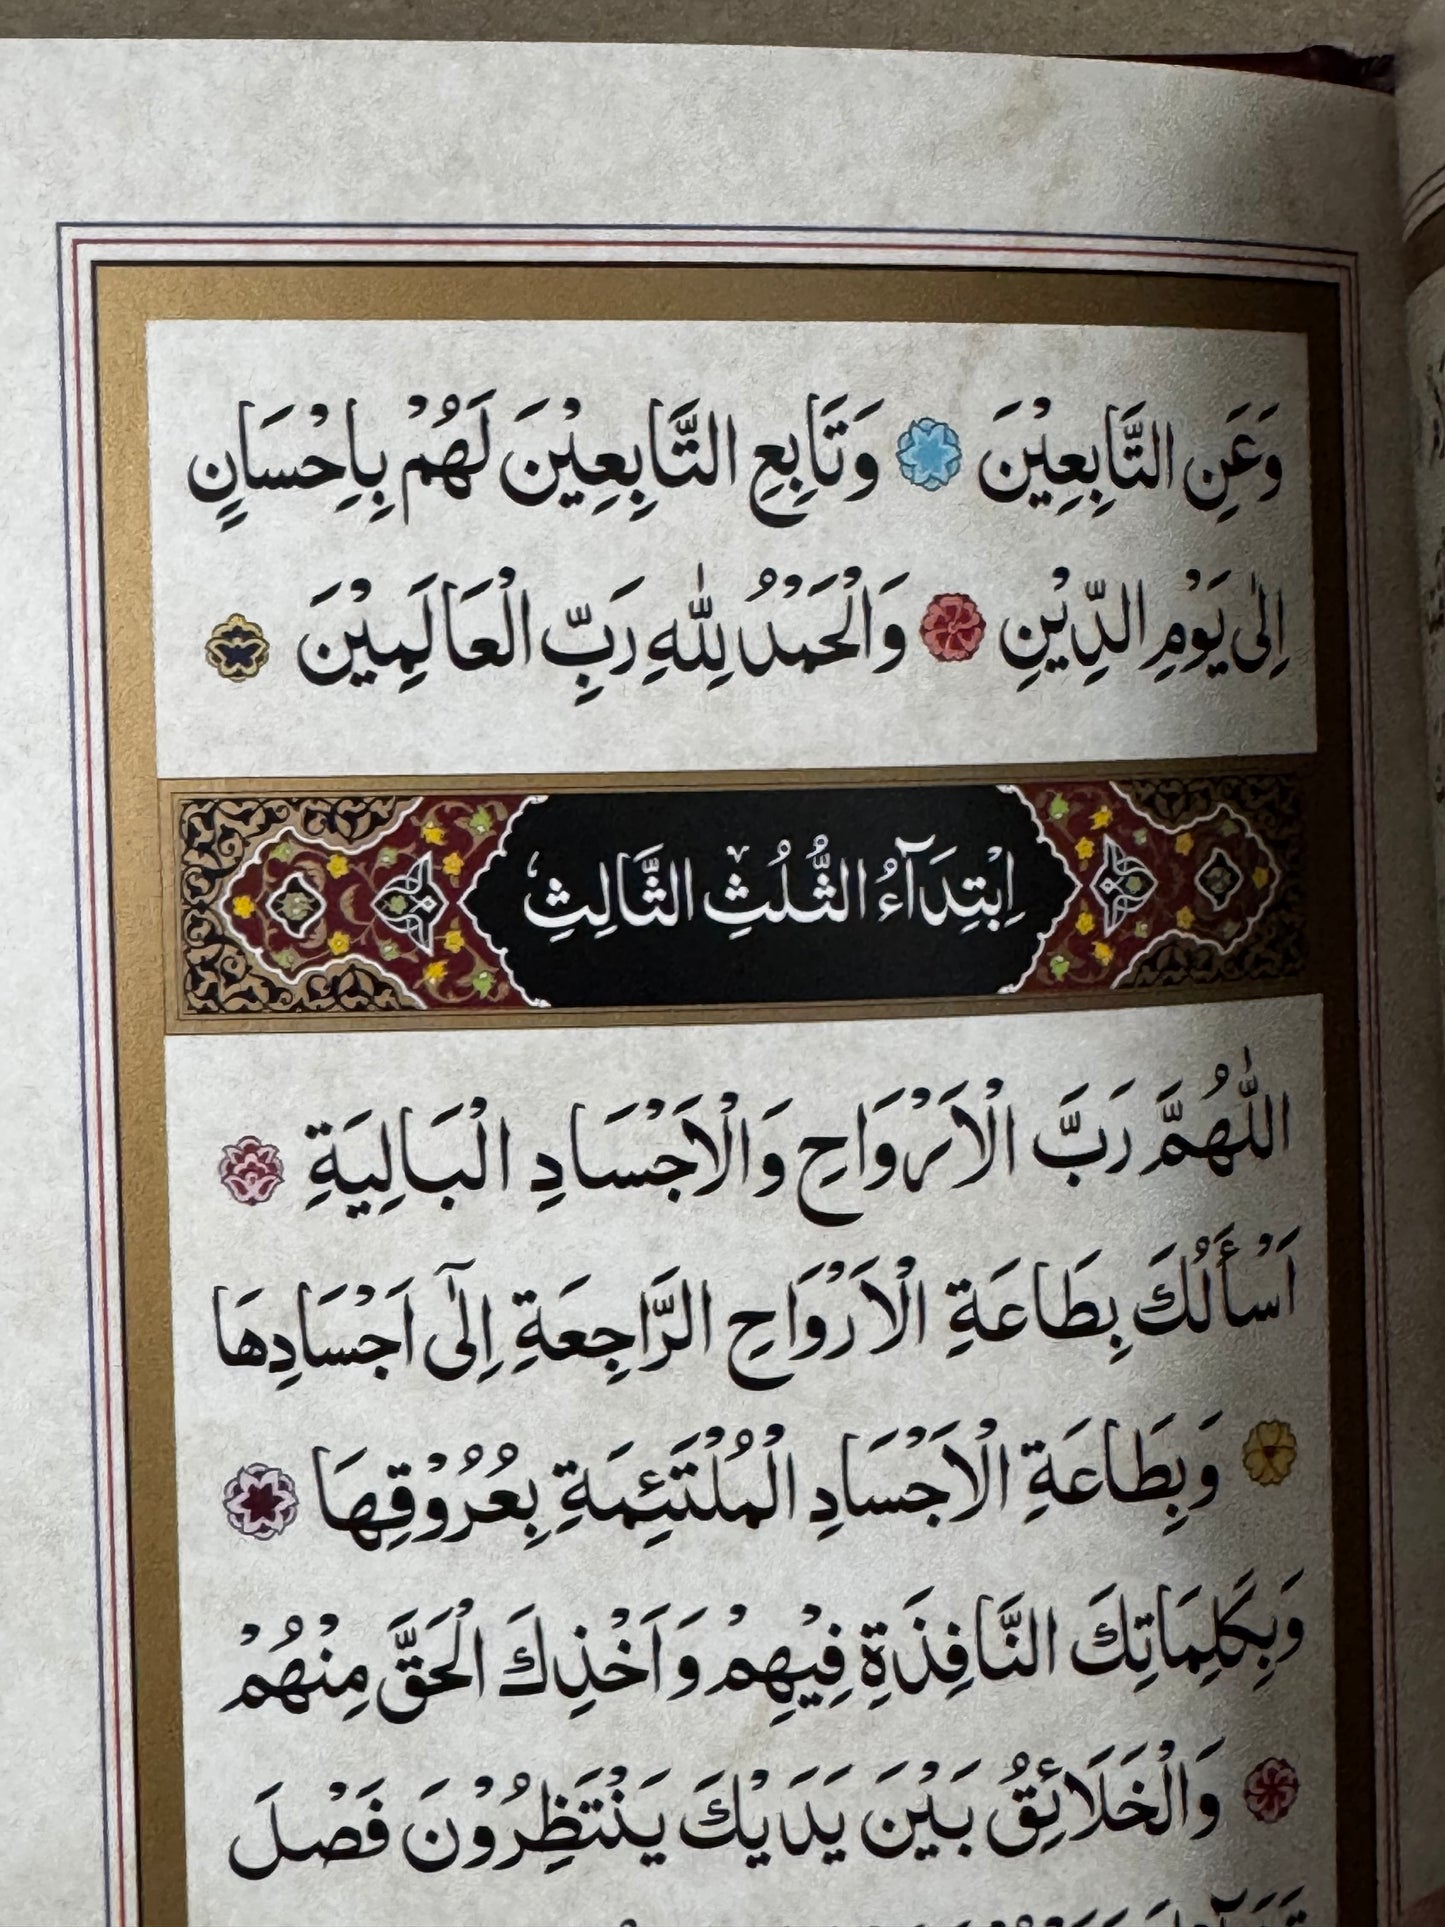 وَعَنِ التَّابِعِيْنَ وَتَابِعِ التَّابِعِيْنَ لَهُمْ بِاِحْسَانٍ
اِلٰى يَوْمِ الدِّيْنِ وَالْحَمْدُ لِلّٰهِ رَبِّ الْعَالَمِيْنَ
اِبْتِدَآءُ الثُّلُثِ الثَّالِثِ
اَللّٰهُمَّ رَبَّ الْاَرْوَاحِ وَالْاَجْسَادِ الْبَالِيَةِ
اَسْأَلُكَ بِطَاعَةِ الْاَرْوَاحِ الرَّاجِعَةِ اِلٰٓى اَجْسَادِهَا
وَبِطَاعَةِ الْاَجْسَادِ الْمُلْتَئِمَةِ بِعُرُوْقِهَا
وَبِكَلِمَاتِكَ النَّافِذَةِ فِيْهِمْ وَاَخْذِكَ الْحَقَّ مِنْهُمْ
وَالْخَلَائِقُ بَيْنَ يَدَيْكَ يَنْتَظِرُوْنَ فَصْلَ